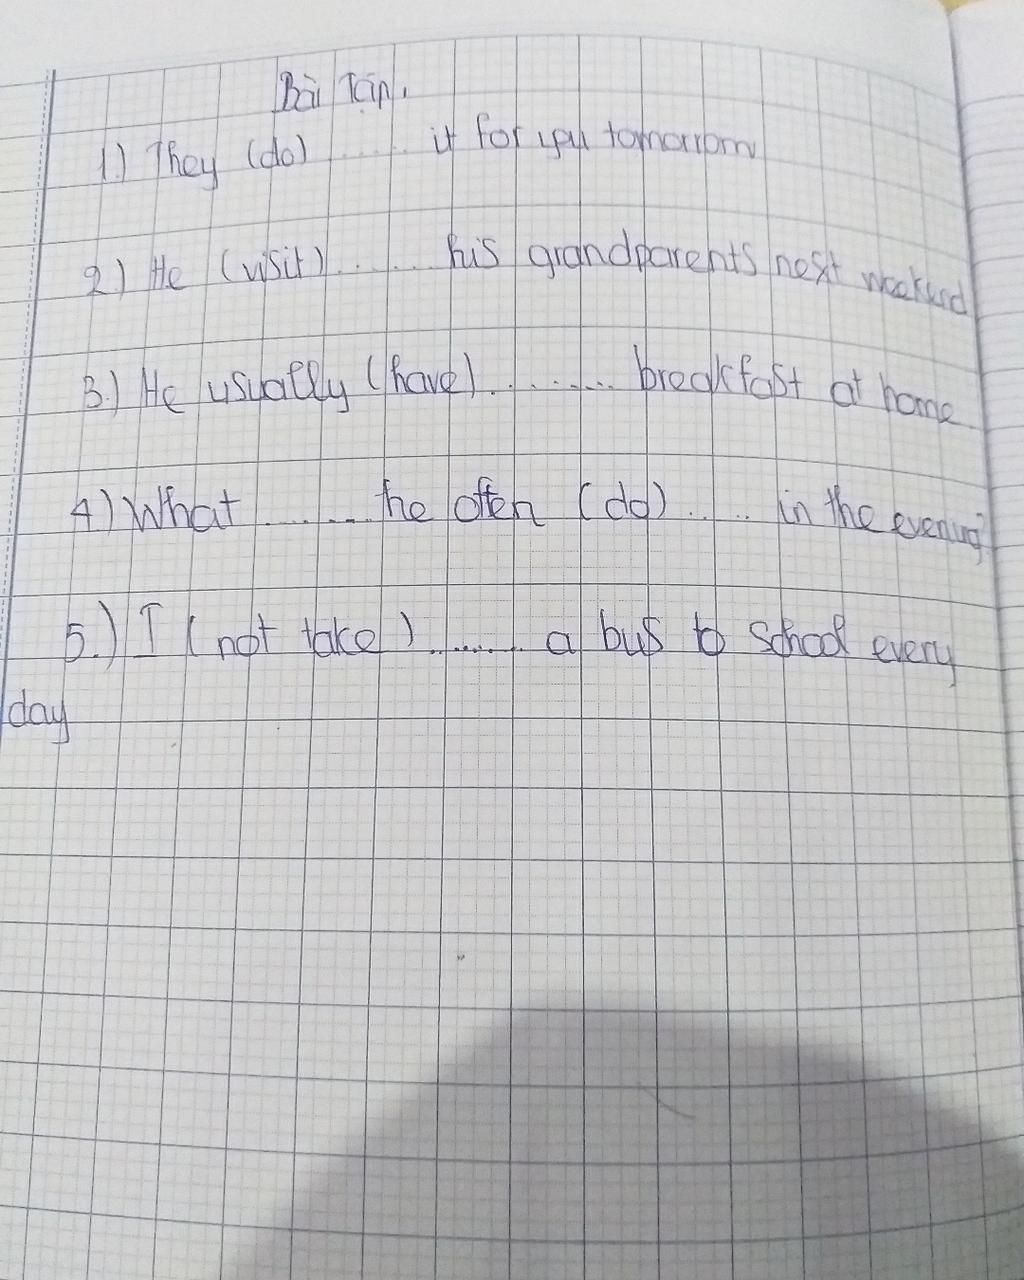 Bài Tập.
1.) They (do) ........ it for you tomorrow
2) He (visit) ........ his grandparents next weekend
3.) He usually (have) ......... breakfast at home
4) What ......... he often (do) ..... in the evening
5.) I (not take) ........ a bus to school every
day